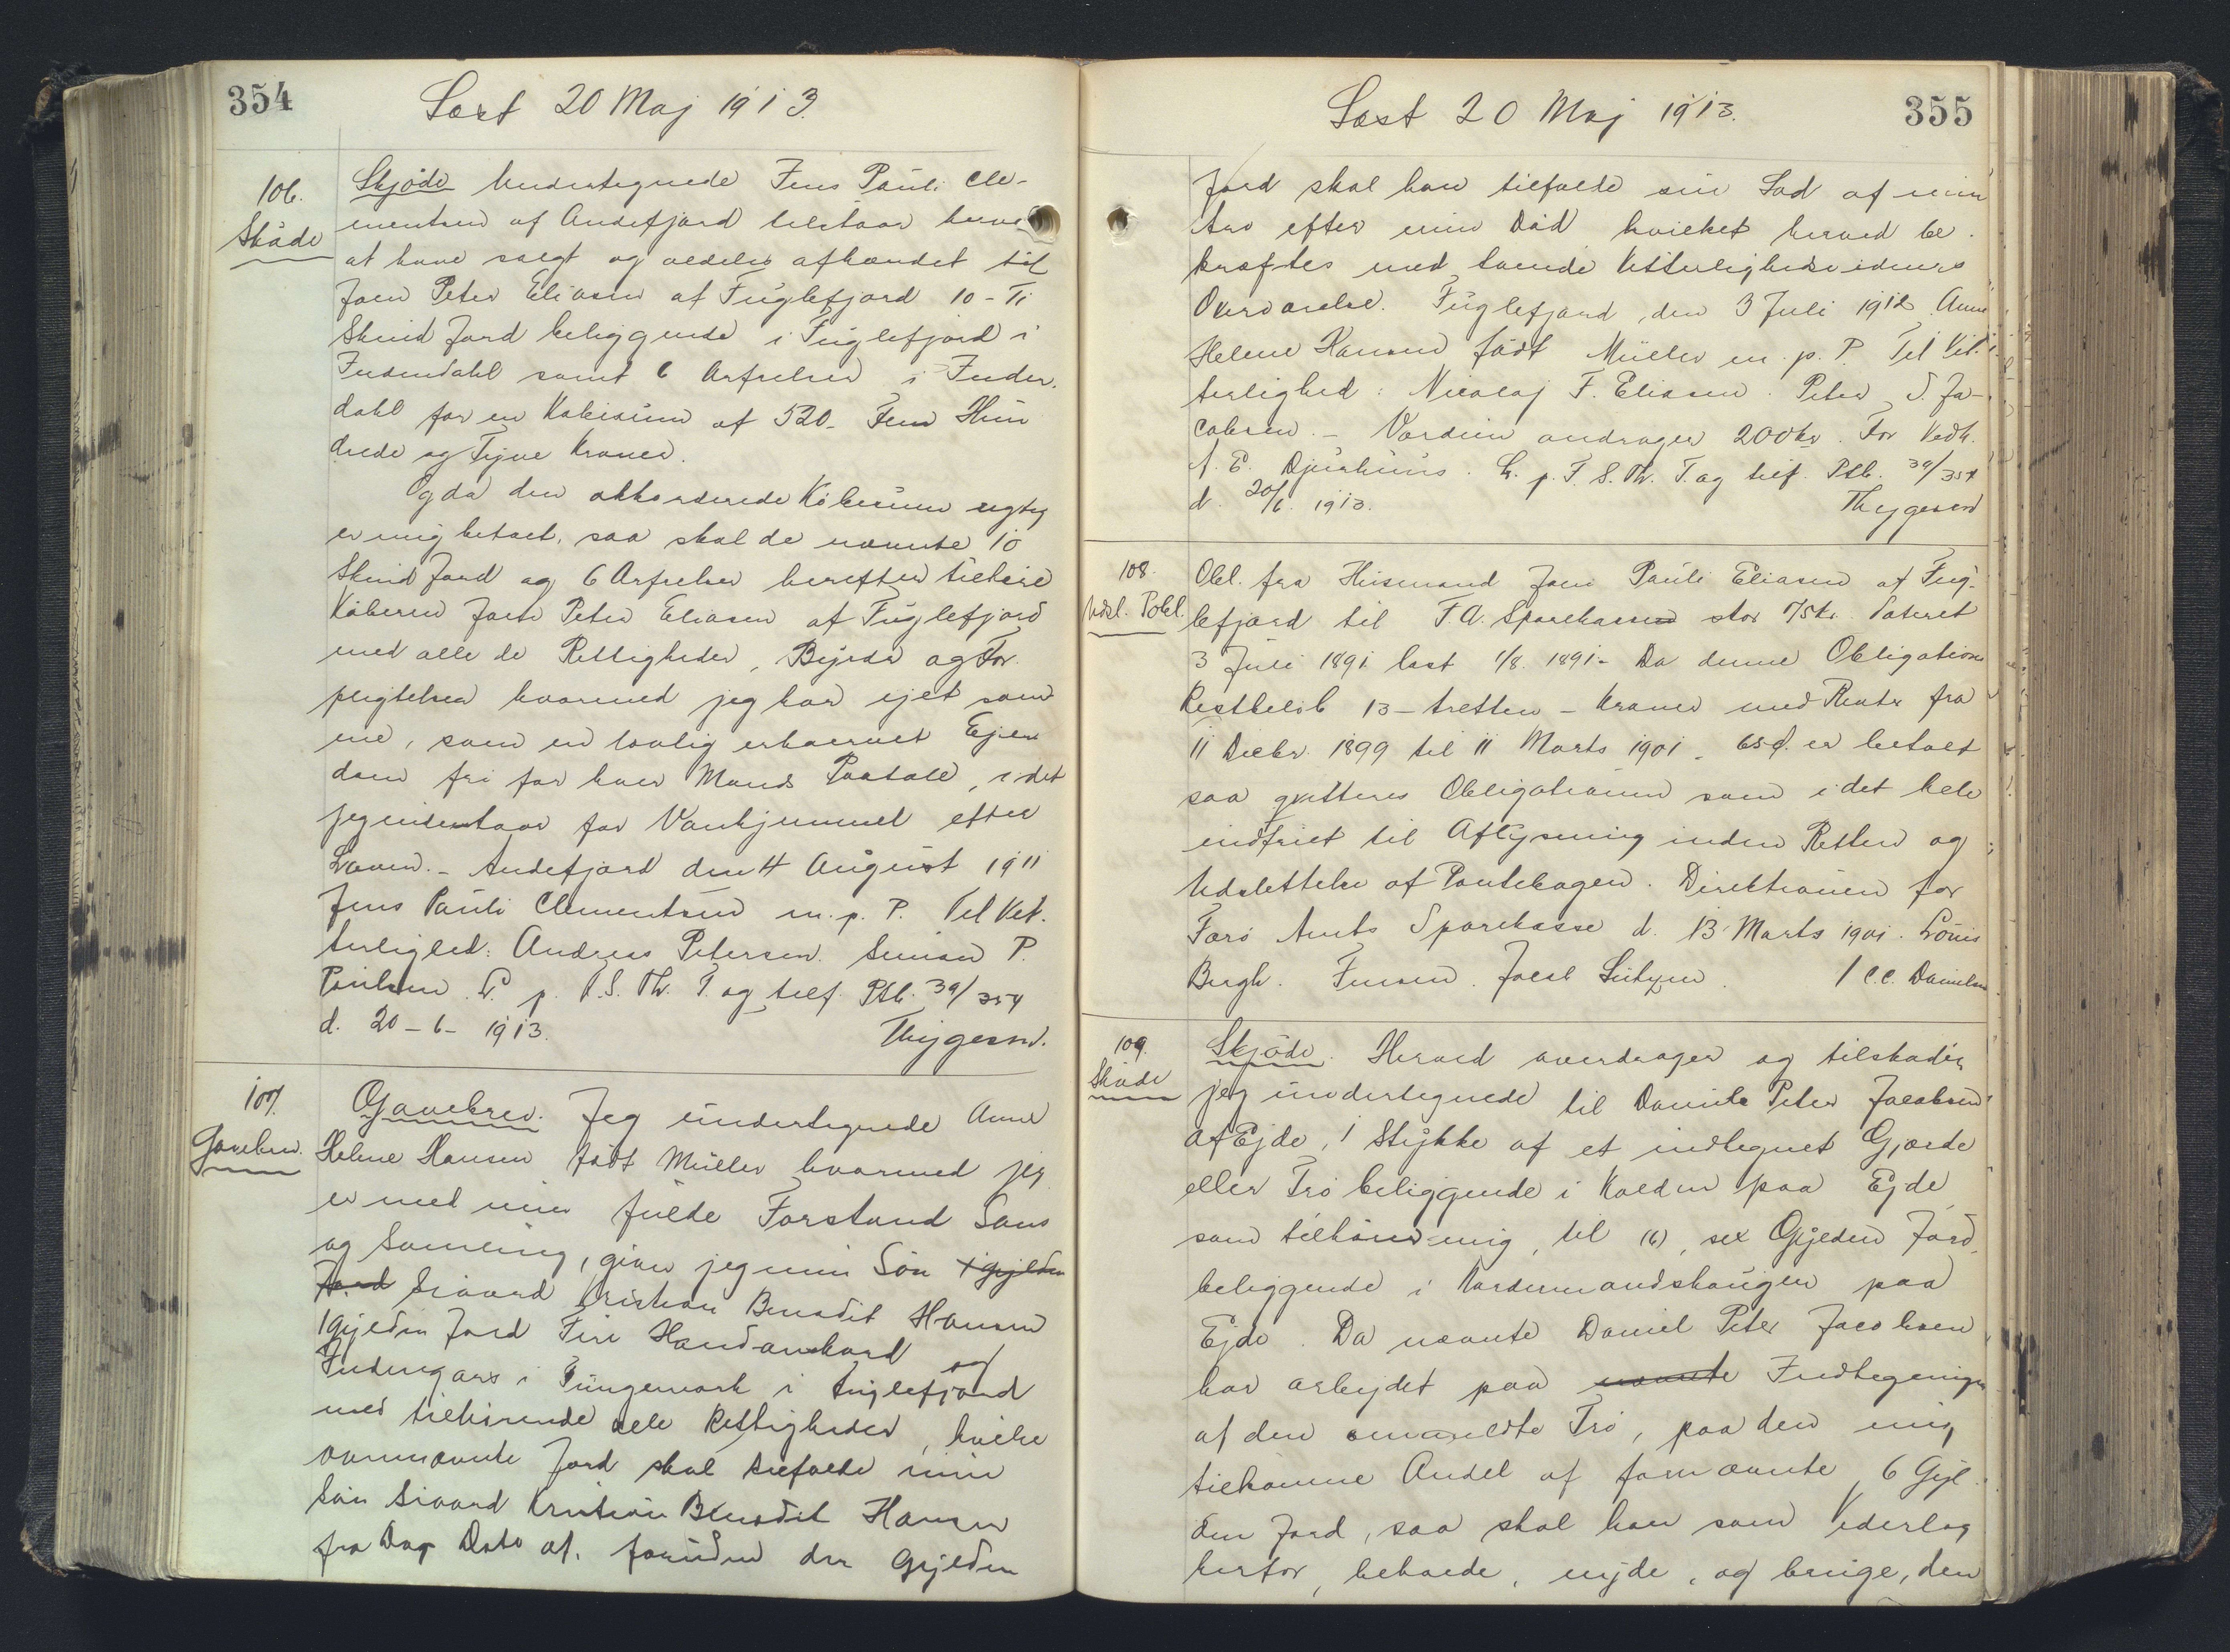 354
Læst 20 Maj 1913.
106.
Skøde
Skjøde Undertegnede Jens Pauli Cle-
mentsen af Andefjord tilstaar herved
at have solgt og aldeles afhændet til
Joen Peter Eliasen af Fuglefjord 10 - Ti
Skind Jord beliggende i Fuglefjord i
Indendahl samt 6 i Inden-
dahl for en Købesum af 520 - Fem Hun
drede og Tyve Kroner.
Og da den akkorderede Købesum rigtig
er mig betalt, saa skal de nævnte 10
Skind Jord og 6 herefter tilhøre
Køberen Joen Peter Eliasen af Fuglefjord
med alle de Rettigheder, Byrder og For-
pligtelser hvormed jeg har ejet sam
me, som en lovlig erhvervet Ejen
dom fri for hver Mands Paatale, idet
jeg indestaar for Vanhjemmel efter
Loven. - Andefjord den 4 August 1911
Jens Pauli Clementsen m. p. P. Til Vit-
terlighed: Andreas Petersen. Simon P.
Poulsen. L. p. F. S. Th. T. og tilf. Ptb. 39/354
d. 20-6-1913. Thygesen.
107.
Gavebrev.
Gavebrev. Jeg undertegnede Anne
Helene Hansen født Müller hvormed jeg
er med min fulde Forstand Sans
og Samling, giver jeg min Søn 1 Gylden
Jord Sivard Kristian Benedit Hansen
1 Gylden Jord Fire
og
Indengars i i Fuglefjord
med tilhørende alle Rettigheder, hvilke
ovennævnte Jord skal tilfalde min
Søn Sivard Kristian Benedit Hansen
fra Dags Dato af. foruden den Gylden
355
Læst 20 Maj 1913.
Jord skal han tilfalde sin Lod af min
Arv efter min Død hvilket herved be-
kræftes med tvende Vitterlighedsvidners
Overværelse. Fuglefjord, den 3 Juli 1912 Anne
Helene Hansen født Müller m. p. P. Til Vit-
terlighed: Nicolaj F. Eliasen. Peter S. Ja-
cobsen. - Værdien andrager 200 kr. For Vedk.
A. E. Djurhuus. L. p. F. S. Th. T. og tilf. Ptb. 39/354
d. 20/6. 1913. Thygesen
108.
Udsl. Pobl.
Obl. fra Husmand Joen Pauli Eliasen af Fug-
lefjord til F. A. Sparekassen stor 75 kr. Dateret
3 Juli 1891 læst 1/8. 1891 - Da denne Obligations
Restbeløb 13 - tretten - Kroner med Rente fra
11 Decbr. 1899 til 11 Marts 1901 - 65 ø. er betalt
saa qvitteres Obligationen som i det hele
indfriet til Aflysning inden Retten og
Udslettelse af Pantebogen. Direktionen for
Færø Amts Sparekasse d. 13 Marts 1901. Louis
Bergh. Jensen. Jacob Lützen. / C. C. Danielsen
109.
Skøde
Skjøde. Herved overdrager og tilskøder
jeg undertegnede til Daniel Peter Jacobsen
af Ejde, 1 Stykke af et indhegnet Gjærde
eller Trø beliggende i paa Ejde,
som tilhører mig, til (6), sex Gylden Jord,
beliggende i paa
Ejde. Da nævnte Daniel Peter Jacobsen
har arbejdet paa nævnte Indhegningen
af den omældte Trø, paa den mig
tilkomne Andel af fornævnte 6 Gyl-
den Jord, saa skal han som Vederlag
herfor, beholde, nyde, og bruge, den